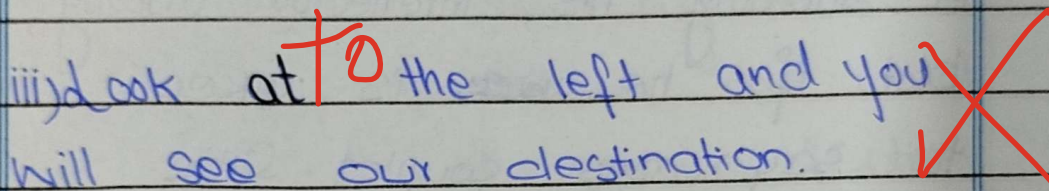 iii) Look at to the left and you
will see our destination.